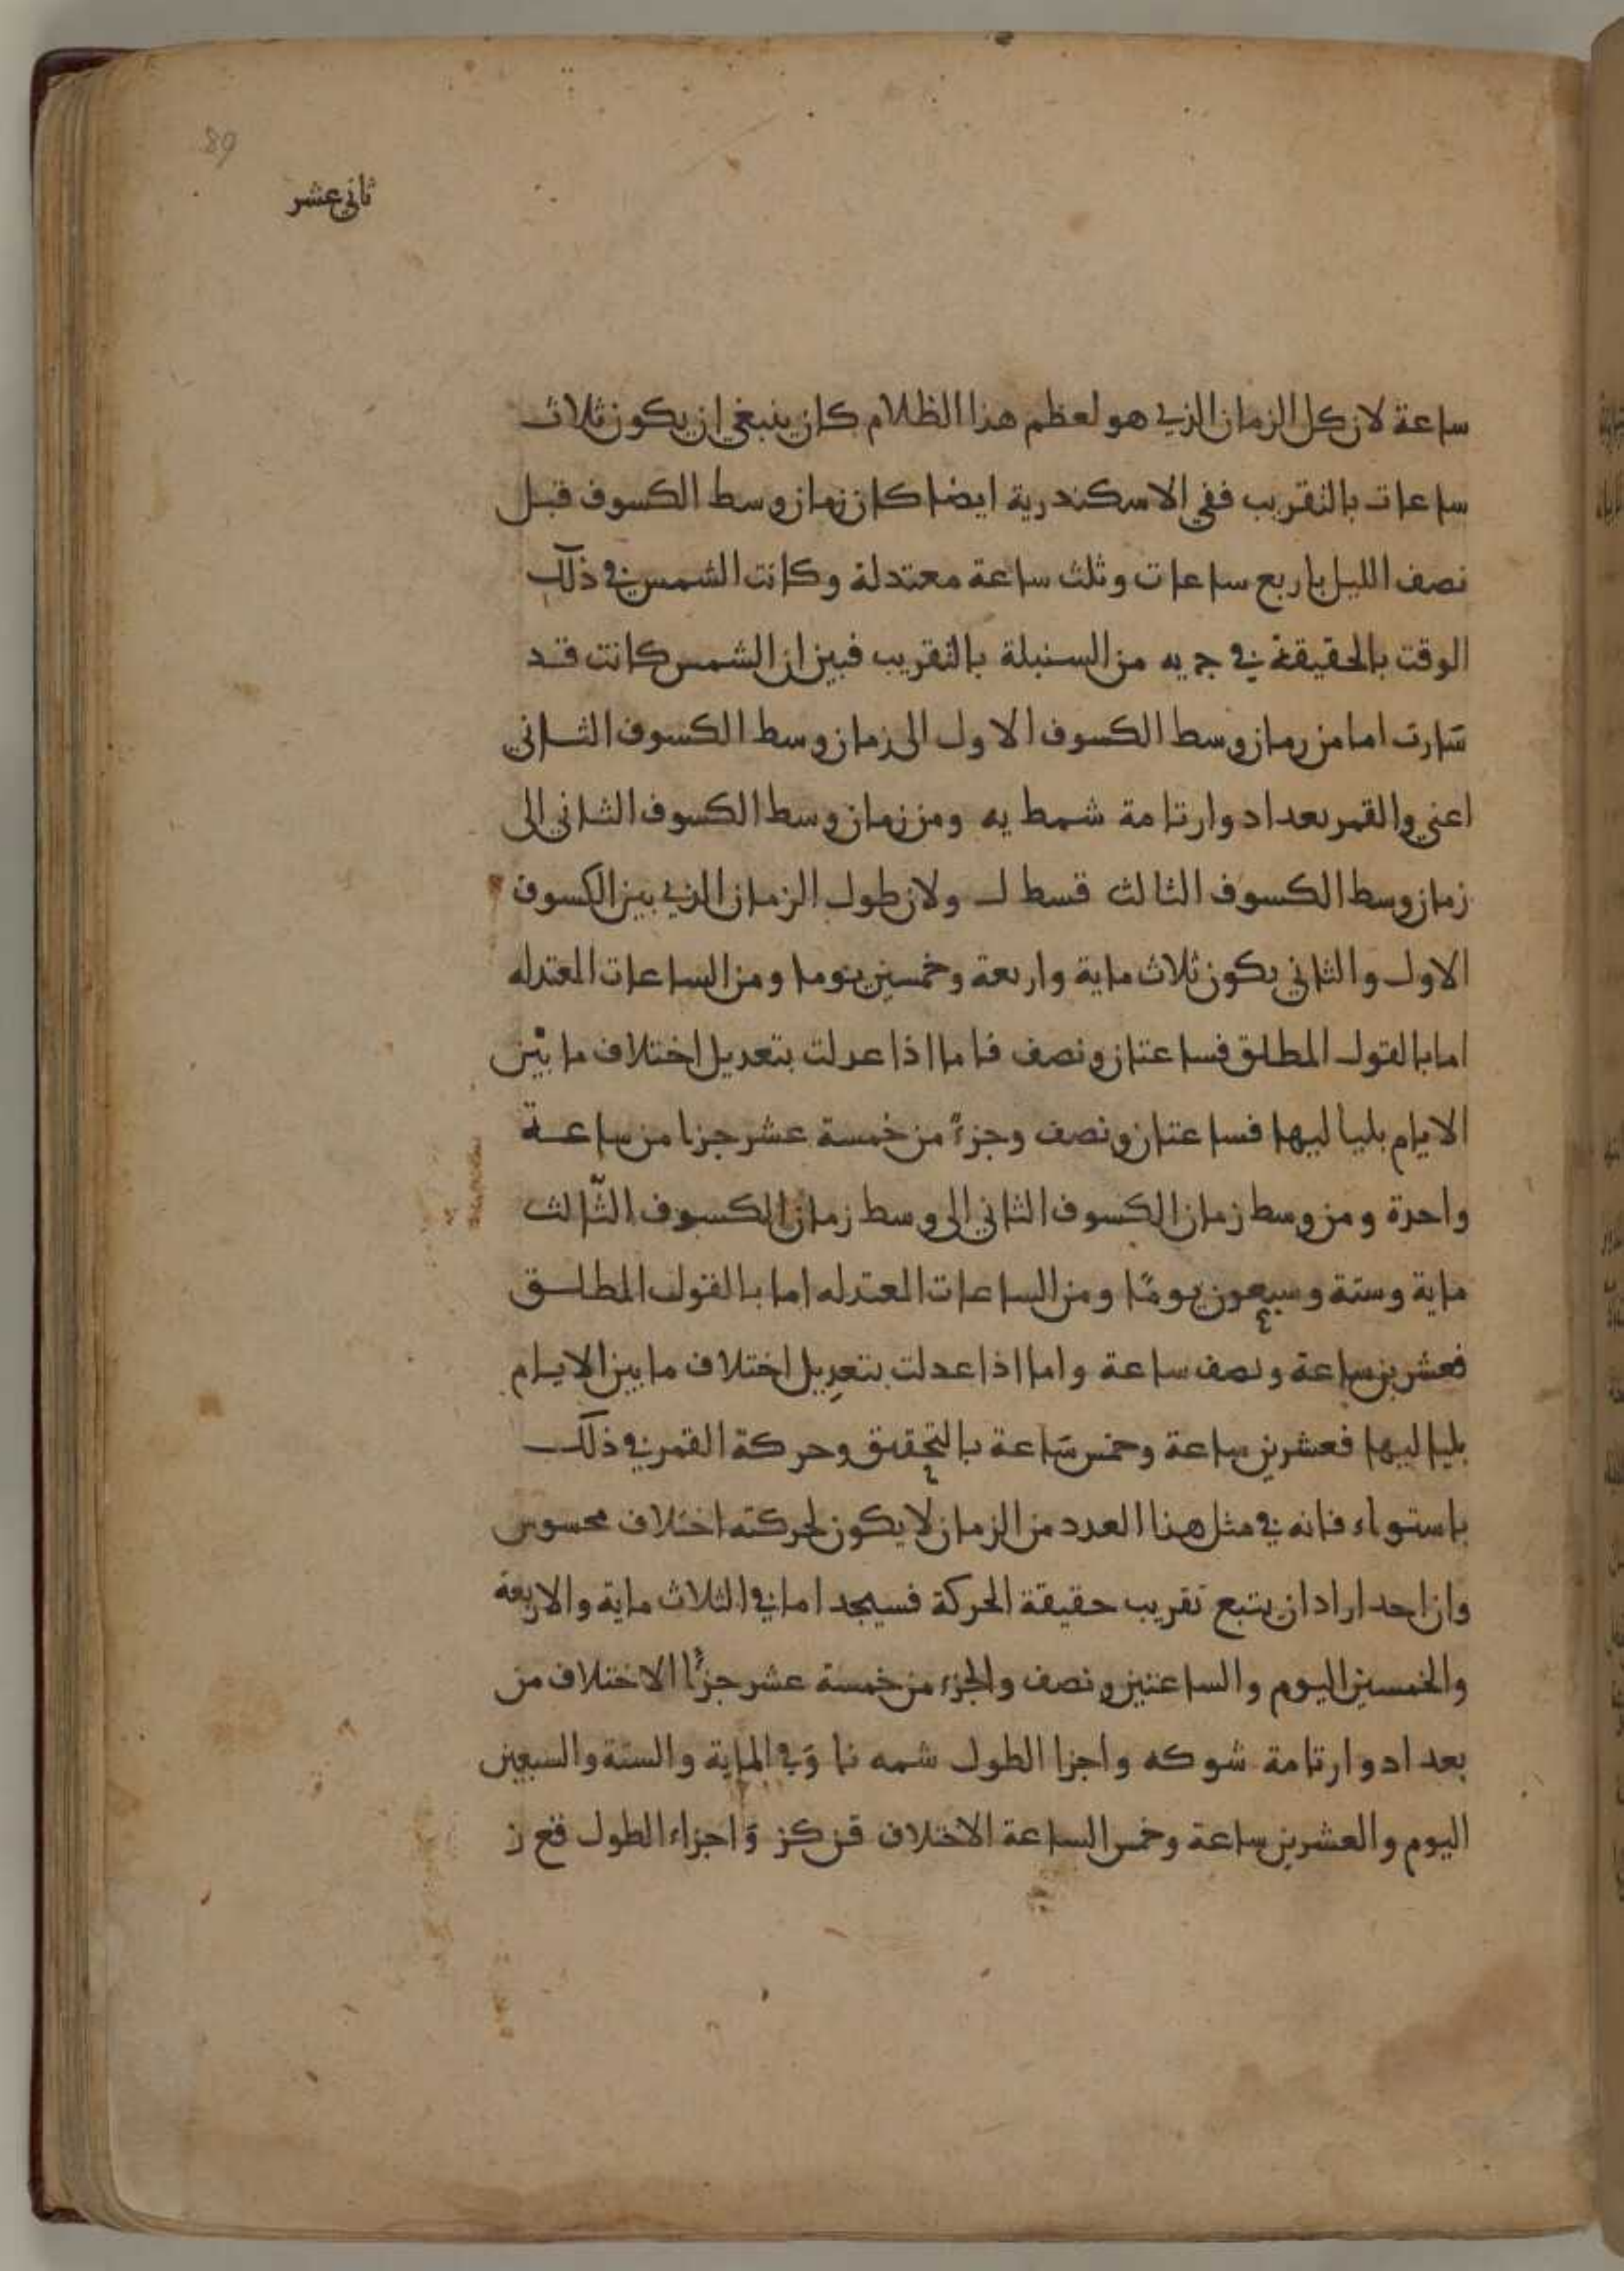 89
ثاني عشر
ساعة لان كل الزمان الذي هو لعظم هذا الظلام كان ينبغي ان يكون ثلاث
ساعات بالتقريب ففي الاسكندرية ايضا كان زمان وسط الكسوف قبل
نصف الليل باربع ساعات وثلث ساعة معتدلة وكانت الشمس في ذلك
الوقت بالحقيقة في ج يه من السنبلة بالتقريب فبين ان الشمس كانت قد
سارت اما من زمان وسط الكسوف الاول الى زمان وسط الكسوف الثاني
اعني والقمر بعد ادوار تامة شمط يه ومن زمان وسط الكسوف الثاني الى
زمان وسط الكسوف الثالث قسط ل ولان طول الزمان الذي بين الكسوف
الاول والثاني يكون ثلاث ماية واربعة وخمسين يوما ومن الساعات المعتدله
اما بالقول المطلق فساعتان ونصف فاما اذا عدلت بتعديل اختلاف ما بين
الايام بلياليها فساعتان ونصف وجزءً من خمسة عشر جزءا من ساعة
واحدة ومن وسط زمان الكسوف الثاني الى وسط زمان الكسوف الثّالث
ماية وستة وسبعون يومًا ومن الساعات المعتدله اما بالقول المطلق
فعشرين ساعة ونصف ساعة واما اذا عدلت بتعديل اختلاف ما بين الايام
بلياليها فعشرين ساعة وخمس ساعة بالتحقيق وحركة القمر في ذلك
باستواء فانه في مثل هذا العدد من الزمان لا يكون لحركته اختلاف محسوس
وان احد اراد ان يتبع تقريب حقيقة الحركة فسيجد اما في الثلاث ماية والاربعة
والخمسين اليوم والساعتين ونصف والجزء من خمسة عشر جزءًا الاختلاف من
بعد ادوار تامة شو كه واجزا الطول شمه نا وَفي الماية والستة والسبعين
اليوم والعشرين ساعة وخمس الساعة الاختلاف قن كز وَاجزاء الطول قع ز